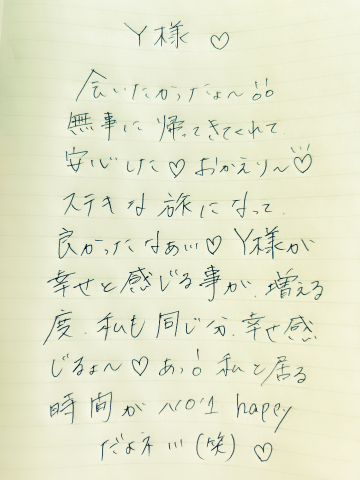 Y様 ♡
会いたかったょ〜!!
無事に帰ってきてくれて
安心した♡おかえり〜♡
ステキな旅になって、
良かったなぁ!!!♡Y様が
幸せと感じる事が、増える
度、私も同じ分、幸せ感
じるょ〜♡あっ!私と居る
時間がNO'1 happy
だよネ!!!(笑)♡